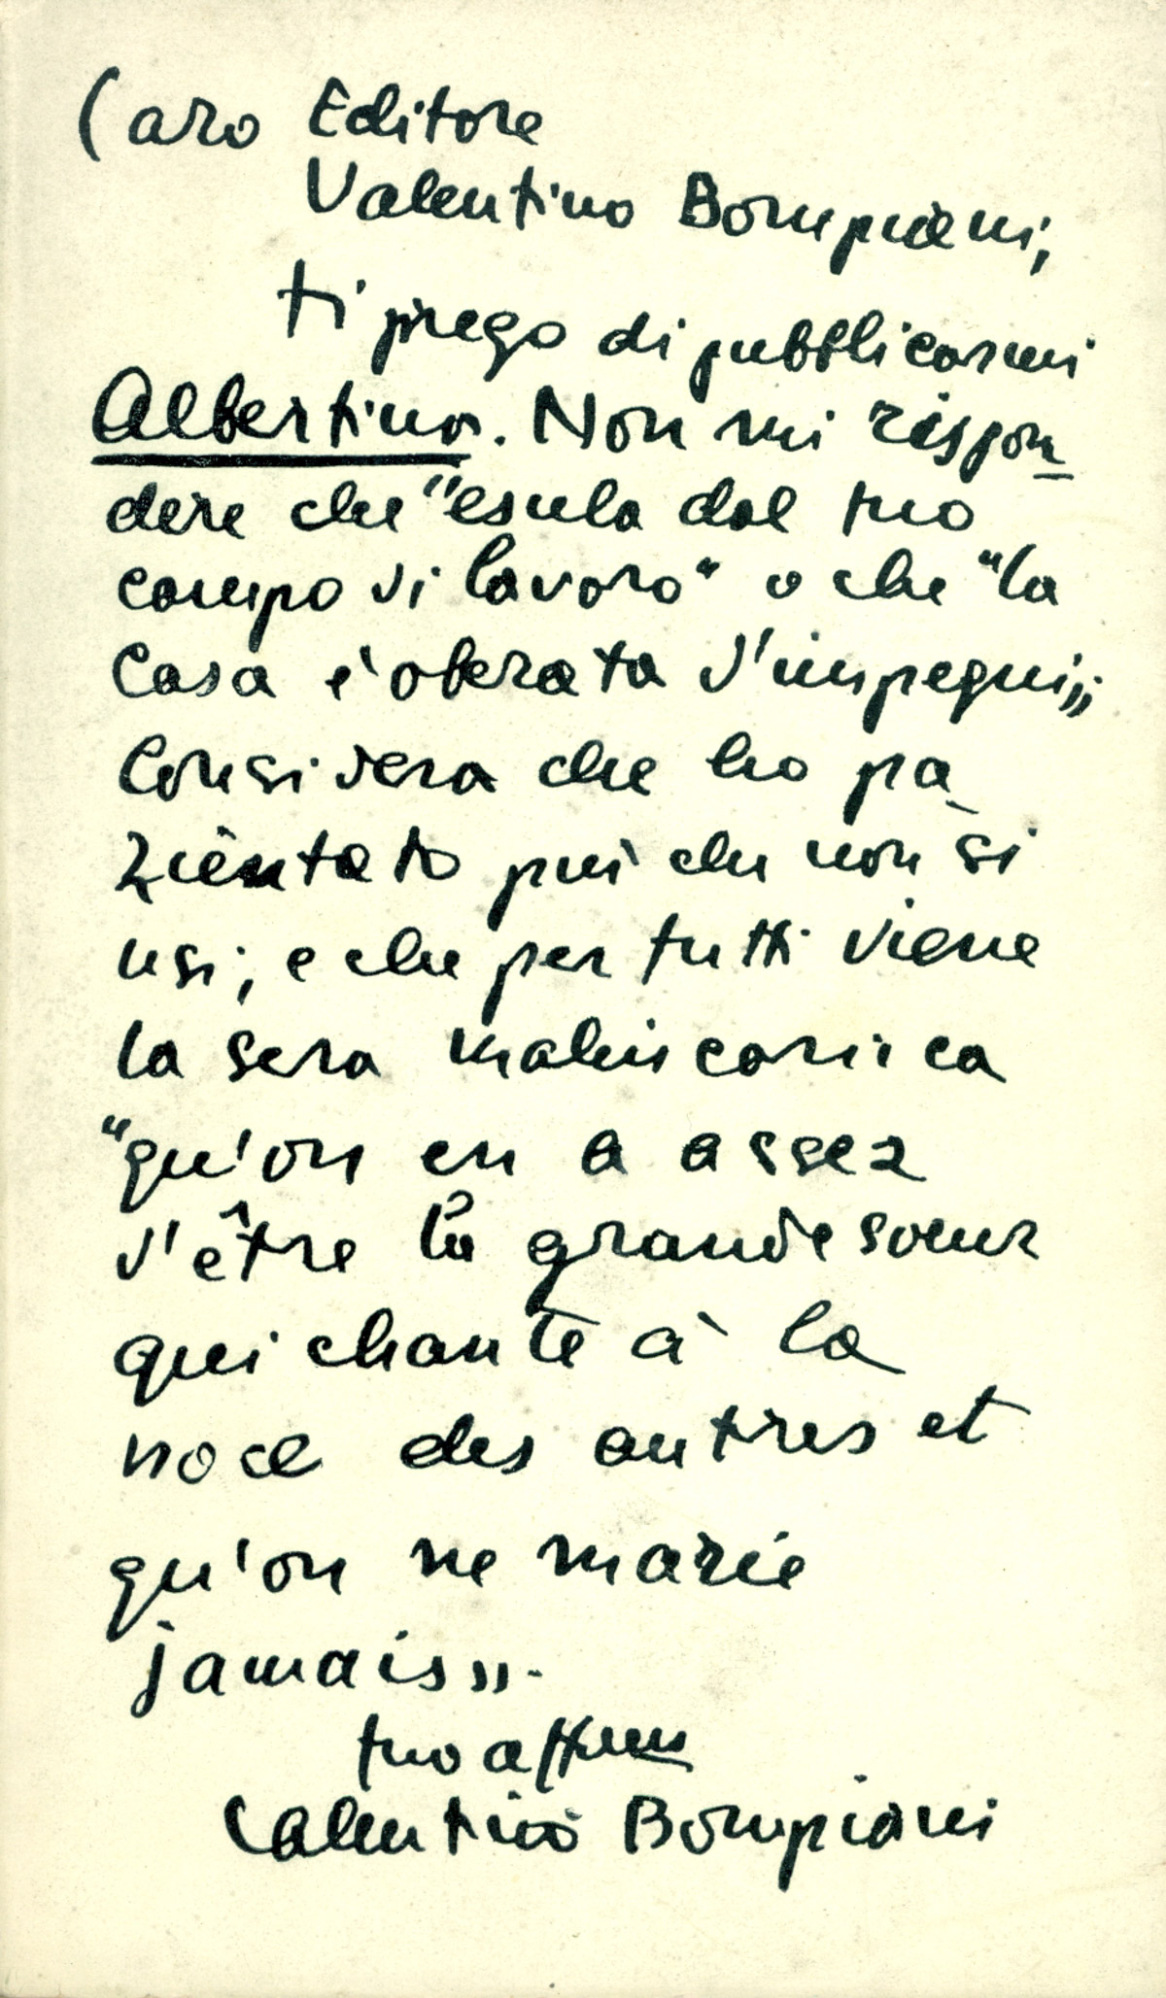 Caro Editore
Valentino Bompiani,
ti prego di pubblicarmi
Albertina. Non mi rispon_
dere che "esula dal tuo
campo di lavoro" o che "la
Casa è oberata d'impegni„
Considera che ho pa_
zientato più che non si
usi; e che per tutti viene
la sera malinconica
"qu'on en a assez
d'être la grande soeur
qui chante à la
noce des autres et
qu'on ne marie
jamais„.
tuo affmo
Valentino Bompiani